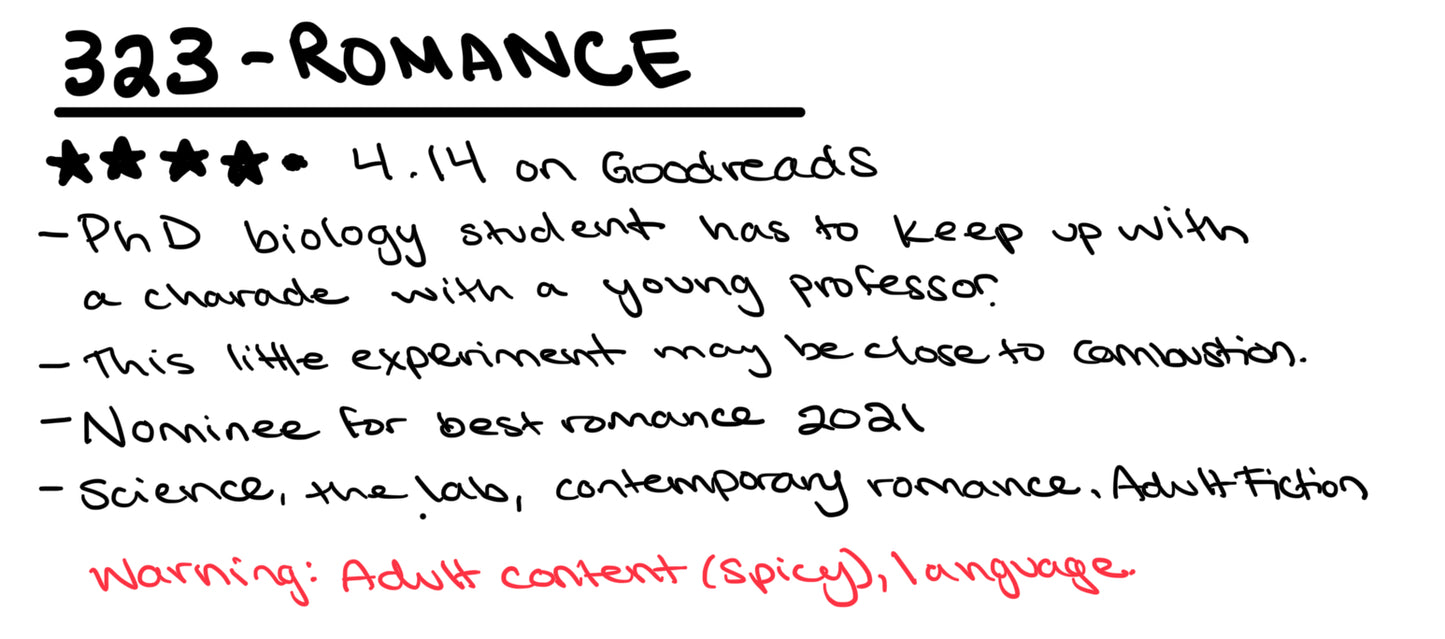 323-ROMANCE
★★★★• 4.14 on Goodreads
- PhD biology student has to keep up with
a charade with a young professor.
- This little experiment may be close to combustion.
- Nominee for best romance 2021
- Science, the lab, contemporary romance, Adult Fiction
Warning: Adult content (spicy), language.